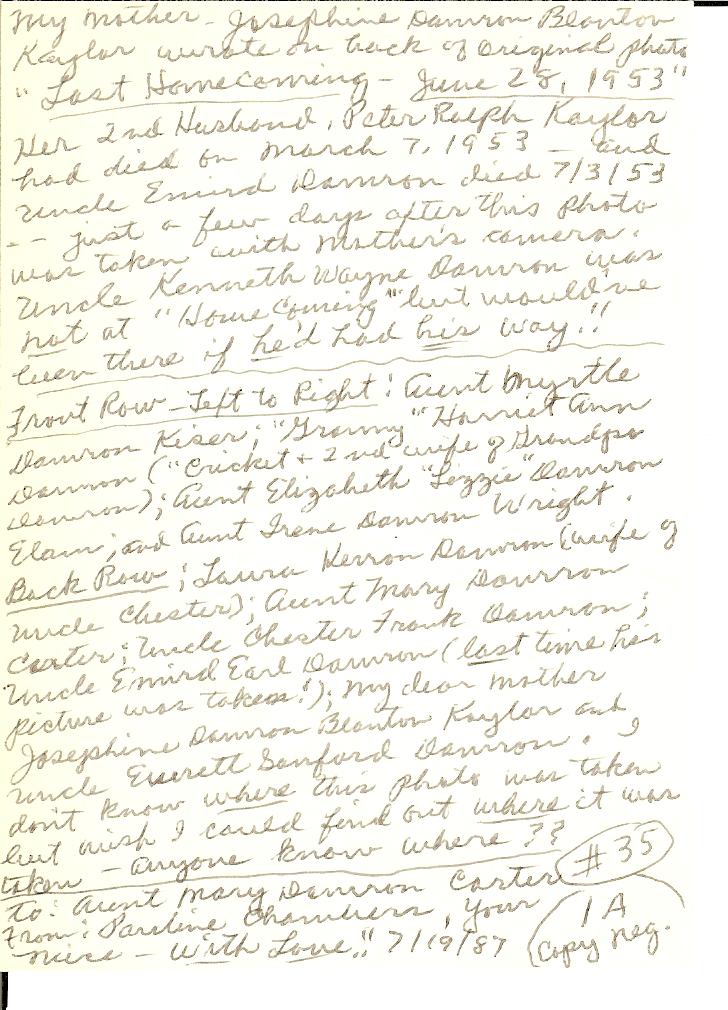 My Mother - Josephine Damron Blanton
Kaylor wrote on back of original photo
"Last Homecoming - June 28, 1953"
Her 2nd Husband, Peter Ralph Kaylor
had died on March 7, 1953 - and
Uncle Emird Damron died 7/3/53
-- just a few days after this photo
was taken with Mother's camera.
Uncle Kenneth Wayne Damron was
not at "Home Coming" but would've
been there if he'd had his way!!
Front Row - Left to Right: Aunt Myrtle
Damron Kiser; "Granny" Harriet Ann
Damron ("Cricket + 2nd wife of Grandpa
Damron); Aunt Elizabeth "Lizzie" Damron
Elam; and Aunt Irene Damron Wright.
Back Row; Laura Damron (wife of
Uncle Chester); Aunt Mary Damron
Carter; Uncle Chester Frank Damron;
Uncle Emird Earl Damron (last time his
picture was taken!); my dear Mother
Josephine Damron Blanton Kaylor and
Uncle Everett Sanford Damron. I
don't know where this photo was taken
but wish I could find out where it was
taken - anyone know where??
#35
to: Aunt Mary Damron Carter
From: Pauline Chambers, your
niece - With Love!! 7/19/87
1A
Copy Neg.